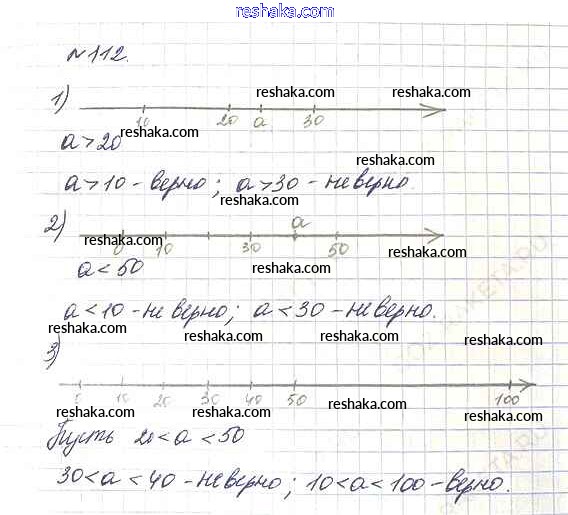 reshaka.com
№112.
reshaka.com reshaka.com
1)
10 20 a 30
reshaka.com
a > 20
reshaka.com
a > 10 - верно; a > 30 - неверно.
reshaka.com
a
2)
reshaka.com reshaka.com
0 10 30 50
a < 50 reshaka.com
a < 10 - неверно; a < 30 - неверно.
reshaka.com reshaka.com reshaka.com reshaka.com
3)
0 10 20 30 40 50 100
reshaka.com reshaka.com reshaka.com reshaka.com
Пусть 20 < a < 50
30 < a < 40 - неверно; 10 < a < 100 - верно.
reshaka.com reshaka.com reshaka.com